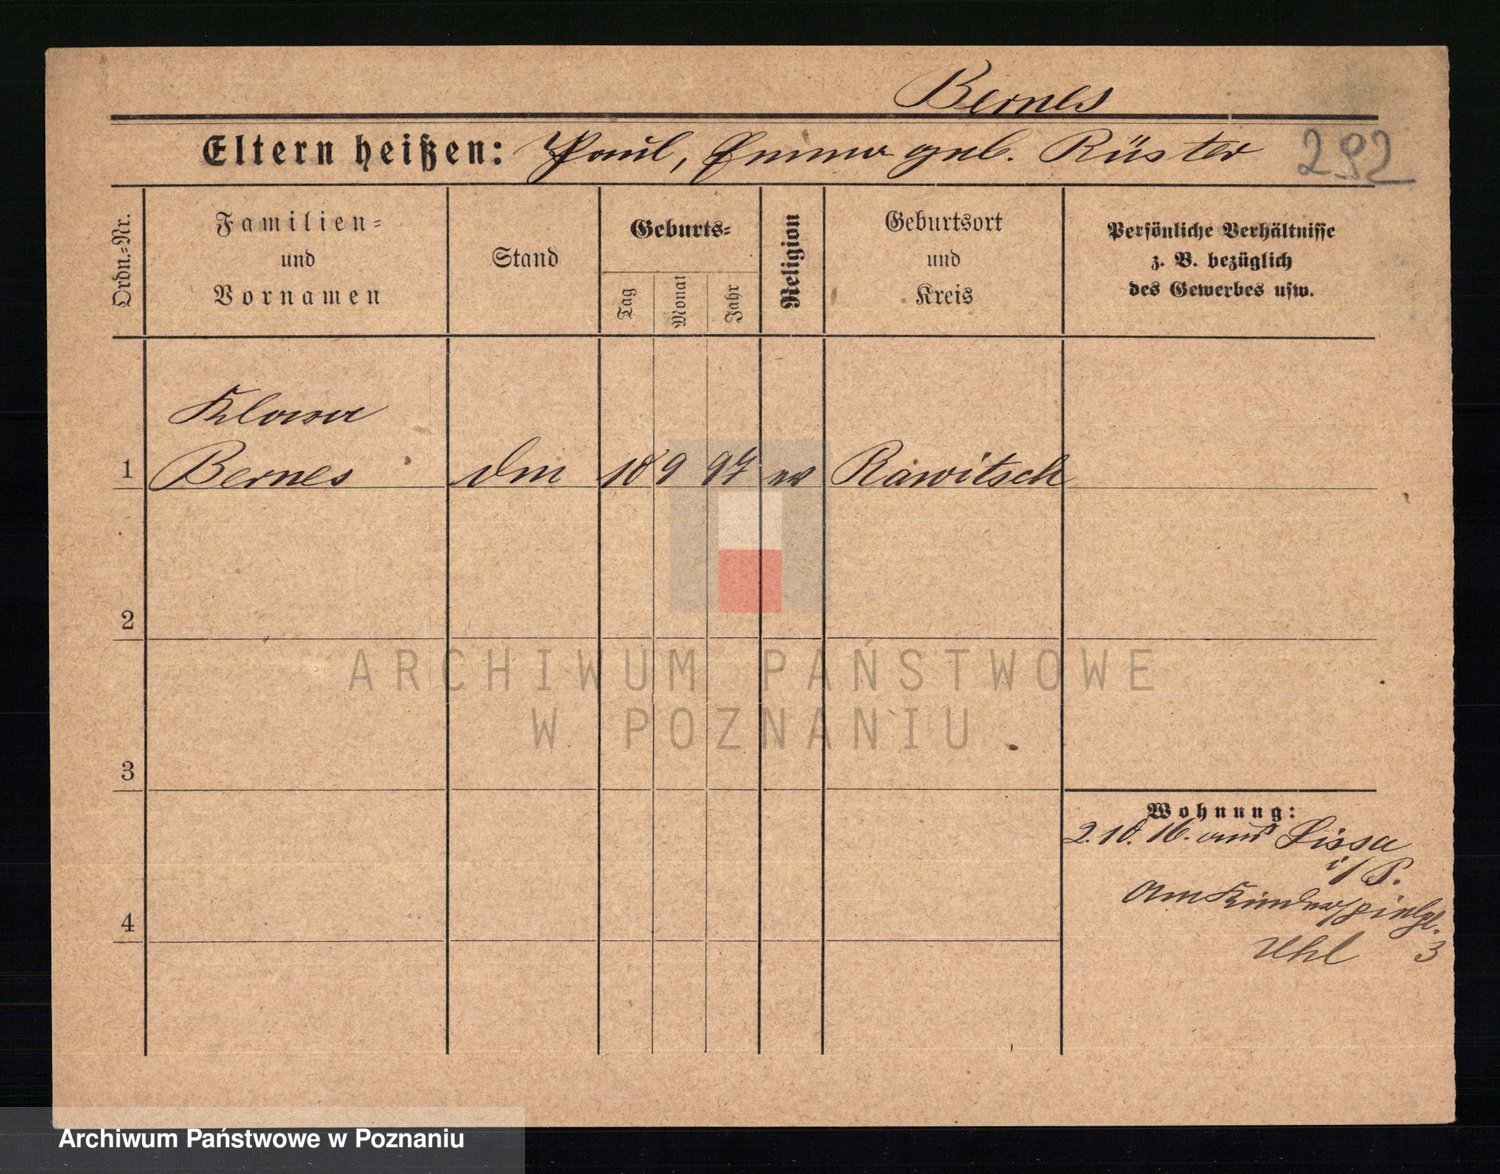 Bernes
Eltern heißen: Paul, Emma geb. Rüster 292
Ordn.-Nr.
Familien-
und
Vornamen
Stand
Geburts-
Tag
Monat
Jahr
Religion
Geburtsort
und
Kreis
Persönliche Verhältnisse
z. B. bezüglich
des Gewerbes usw.
Klara
1 Bernes 9 97 Rawitsch
2
3
4
Wohnung:
2.10.16. aus Lissa
i/P.
Am
3
Uhl
ARCHIWUM PAŃSTWOWE
W POZNANIU
Archiwum Państwowe w Poznaniu